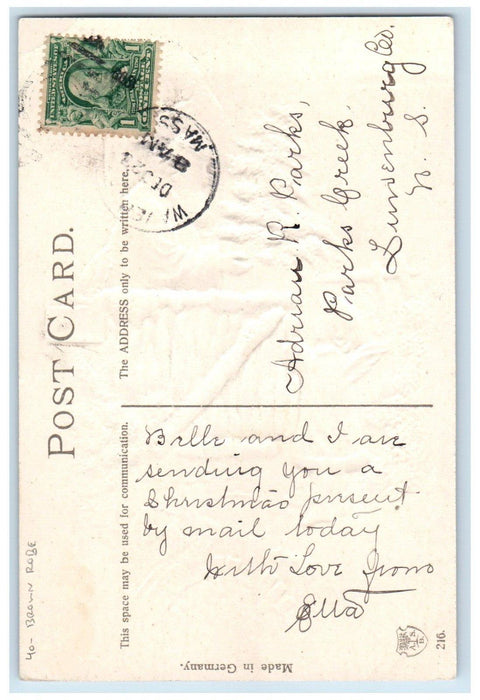 POST CARD.
The ADDRESS only to be written here.
This space may be used for communication.
MASS
8 AM
DEC 2
1
1
Adrian R. Parks,
Parks Creek.
Lunenburg Co.
N. S.
Belle and I are
sending you a
Christmas present
by mail today
With Love from
Ella
40- BROWN ROBE
Made in Germany.
216.